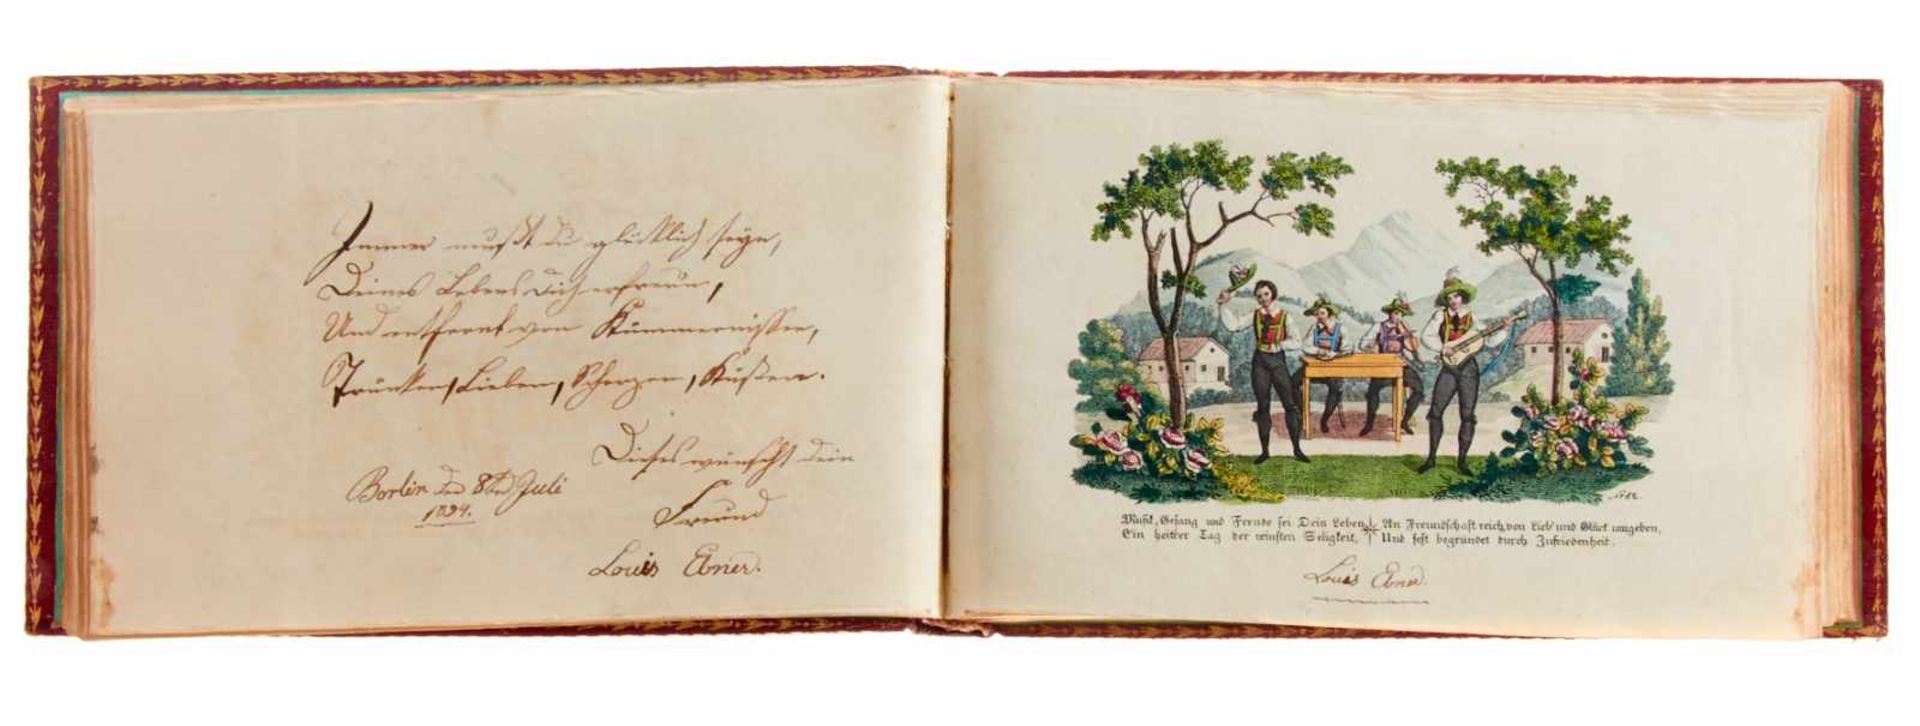 Immer mußt du glücklich seyn,
Deines Lebens dich erfreun,
Und entfernt von Kümmernissen,
Trinken, Lieben, Scherzen, Küßen.
Dieses wünscht dein
Freund
Louis Ebner.
Berlin den 8ten Juli
1824.
Musik, Gesang und Freude sei Dein Leben,
Ein heitrer Tag der reinsten Seligkeit,
An Freundschaft reich, von Lieb' und Glück umgeben,
Und fest begründet durch Zufriedenheit.
Louis Ebner.